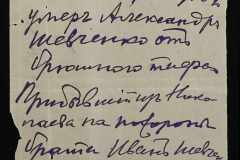 умер Александр
Шевченко от
брюшного тифа
Прибывший из Нико
лаева на похороны
брата Иван Шевч